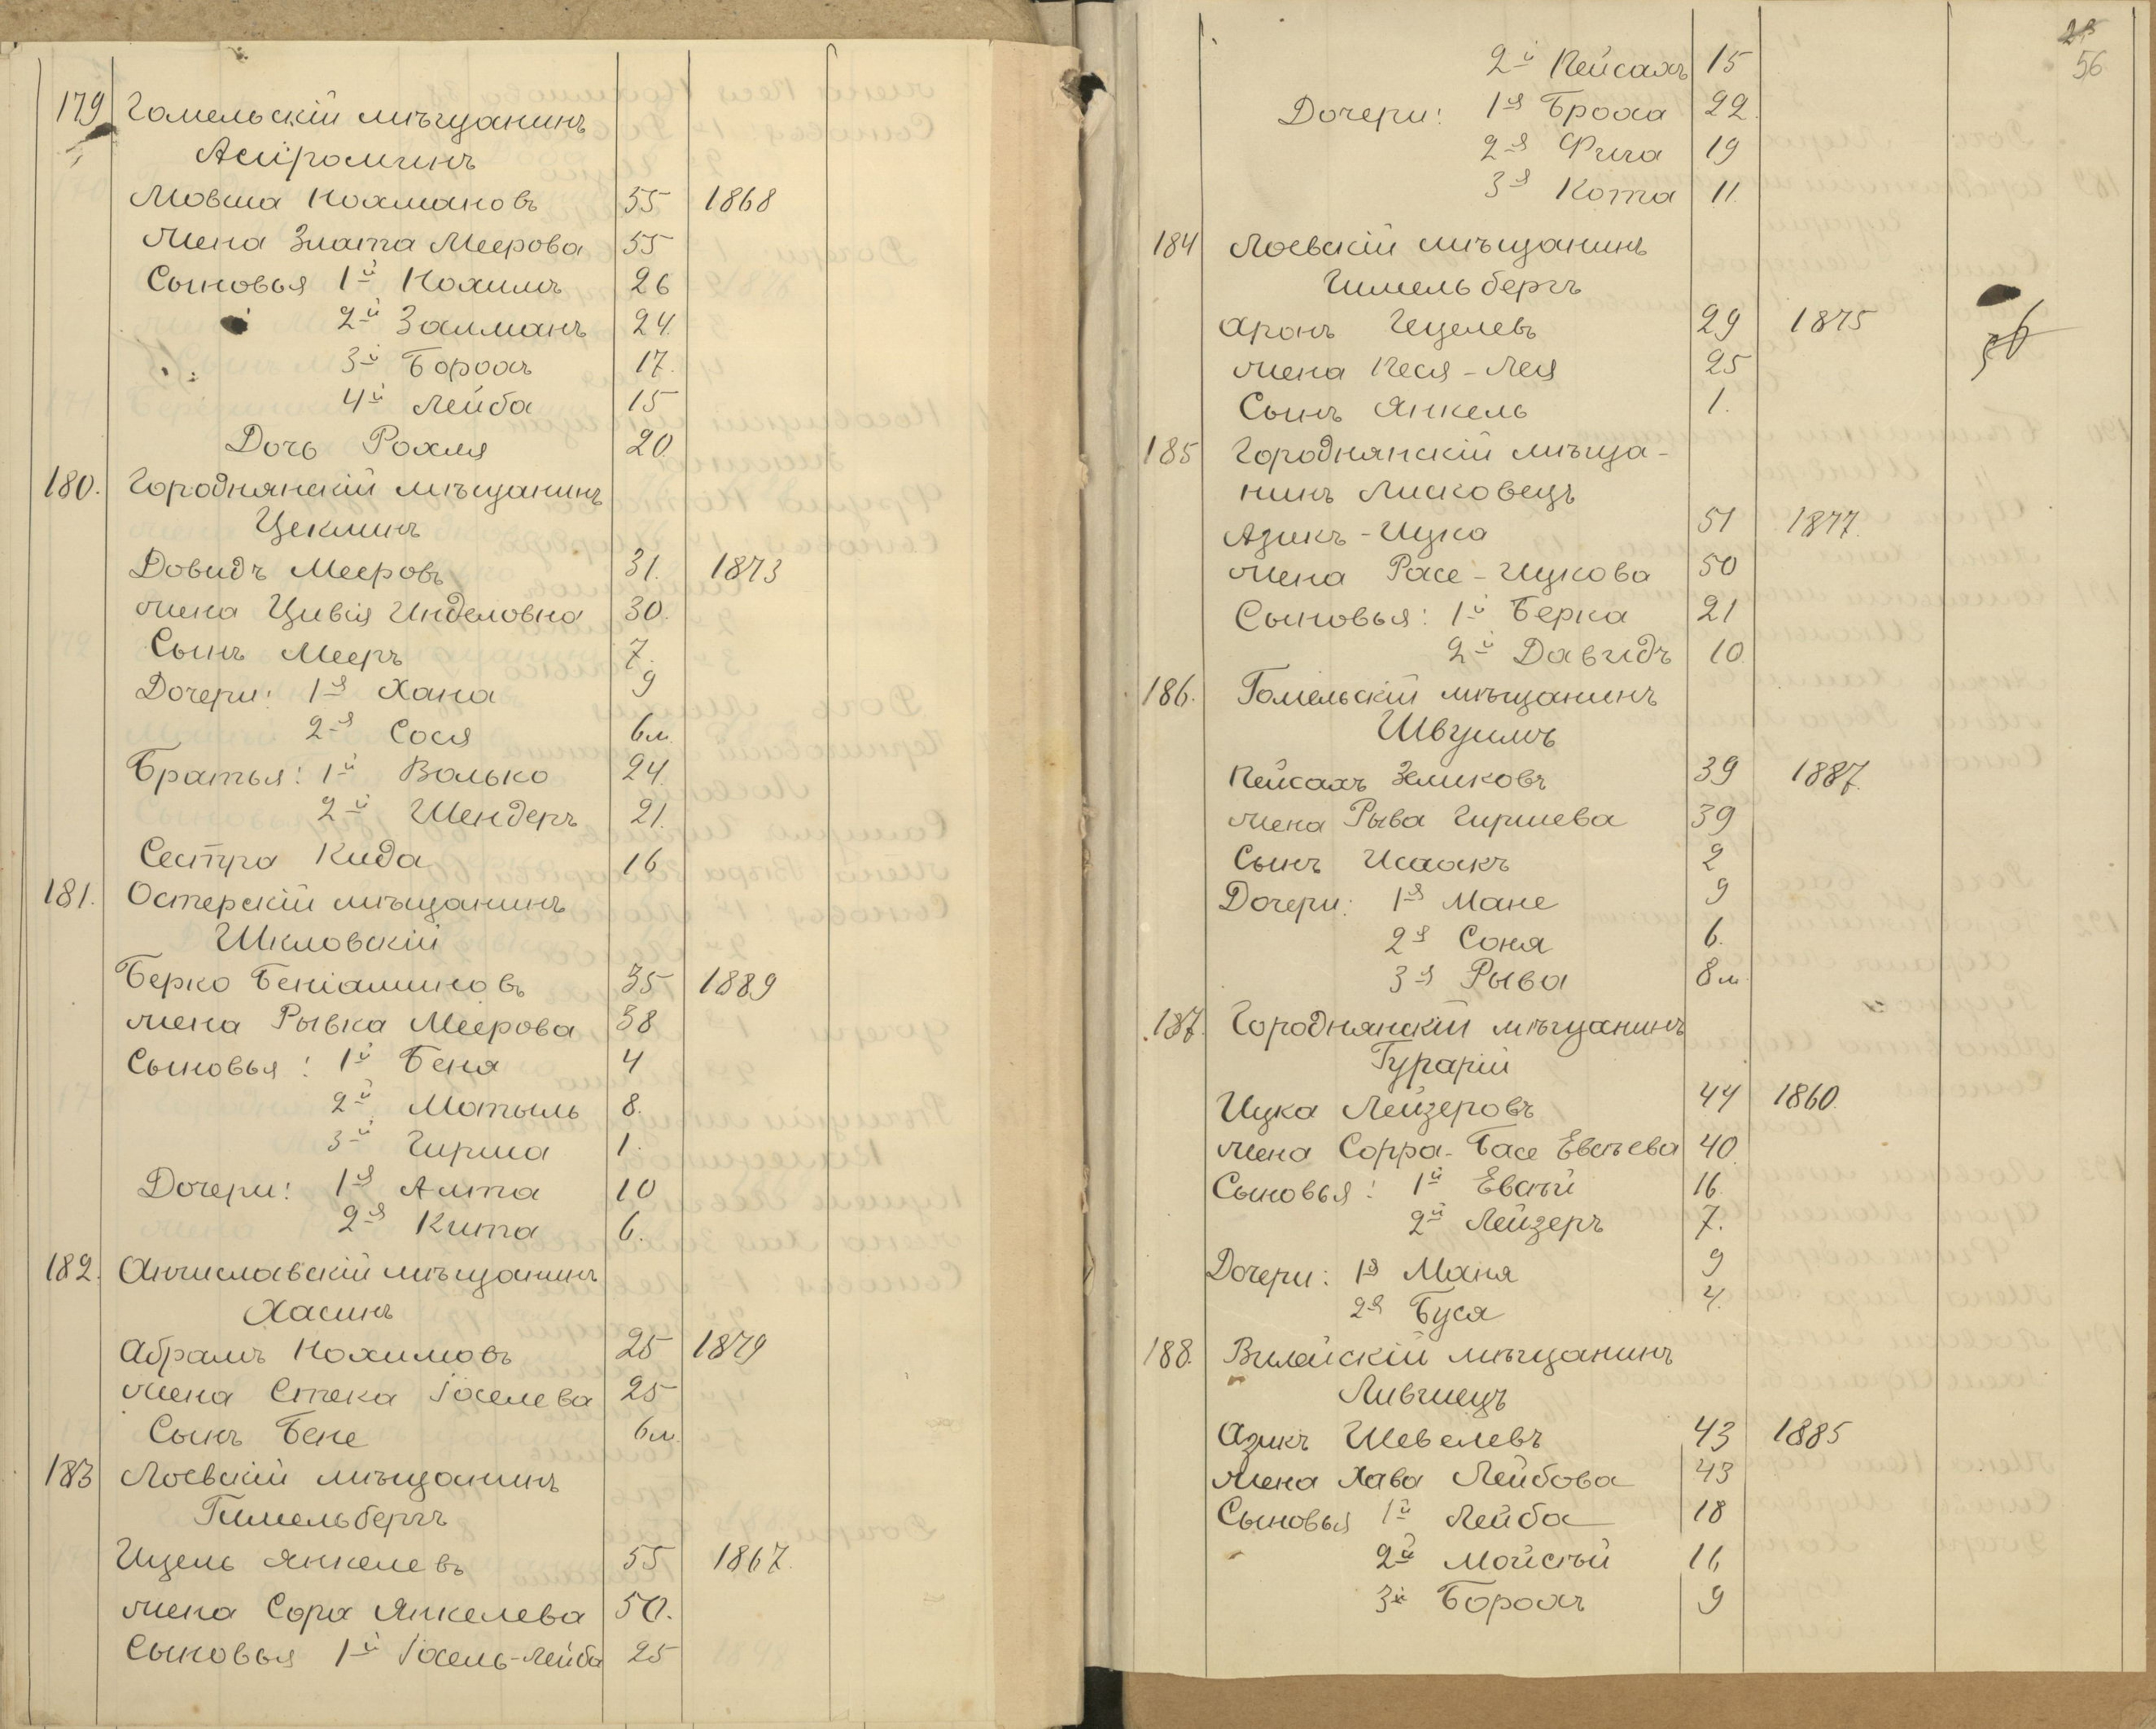 179 Гомельскій мѣщанинъ
Аспромтинъ
Мовша Нохмановъ 55 1868
жена Злата Меерова 55
Сыновья 1й Нохимъ 26
2й Залманъ 24.
3й Борохъ 17.
4й Лейба 15
Дочь Рохля 20
180. Городнянскій мѣщанинъ
Цеклинъ
Довидъ Мееровъ 31. 1873
жена Цивія Инделовна 30.
Сынъ Мееръ 7.
Дочери: 1я Хана 9
2я Сося 6м.
Братья: 1й Волько 24.
2й Шендеръ 21.
Сестра Кида 16
181. Остерскій мѣщанинъ
Шкловскій
Берко Беніаминовъ 35 1889
жена Рывка Меерова 38
Сыновья: 1й Бена 4
2й Мотыль 8.
3й Гирша 1.
Дочери: 1я Алта 10
2я Кита 6.
182. мѣщанинъ
Хасинъ
Абрамъ Нохимовъ 25 1879
жена Стека Іоселева 25
Сынъ Бене 6м.
183 Лоевскій мѣщанинъ
Гимельбергъ
Ицель Янкелевъ 55 1867.
жена Сора Янкелева 50.
Сыновья 1й Іосель-Лейба 25
56
2й Пейсахъ 15
Дочери: 1я Броха 22.
2я Фига 19
3я Кота 11.
184 Лоевскій мѣщанинъ
Гимельбергъ
Аронъ Гецелевъ 29 1875
жена Песя-Лея 25
Сынъ Янкель 1.
185 Городнянскій мѣща-
нинъ Лисковецъ
Азикъ-Ицка 51 1877.
жена Расе-Ицкова 50
Сыновья: 1й Берка 21
2й Давидъ 10
186. Гомельскій мѣщанинъ
Швуимъ
Пейсахъ Зеликовъ 39 1887.
жена Рыва Гиршева 39
Сынъ Исаакъ 2
Дочери: 1я Мане 9
2я Соня 6.
3я Рыва 8м
187. Городнянскій мѣщанинъ
Гурарій
Ицка Лейзеровъ 44 1860.
жена Сорра-Басе Евсѣева 40.
Сыновья: 1й Евсѣй 16.
2й Лейзеръ 7.
Дочери: 1я Маня 9
2я Буся 4.
188. Вилейскій мѣщанинъ
Лившецъ
Азикъ Шевелевъ 43 1885
жена Хава Лейбова 43
Сыновья 1й Лейба 18
2й Мойсѣй 11,
3й Борохъ 9